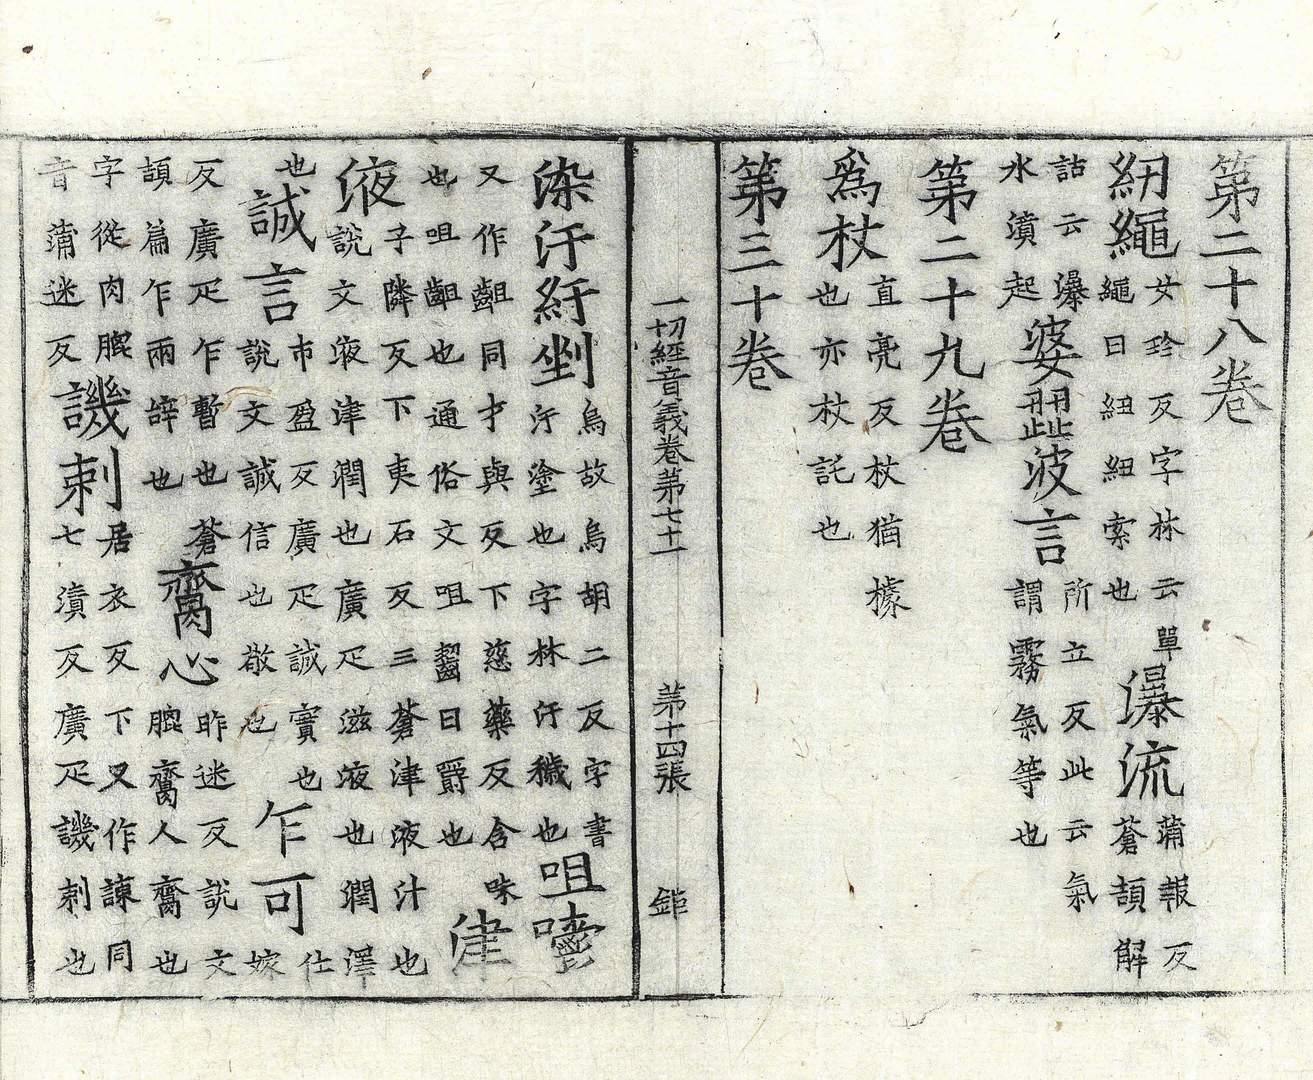 第二十八卷
紉繩女珍反字林云單繩曰紉紉索也瀑流蒲報反蒼頡解
詁云瀑水濆起婆波言所立反此云氣謂霧氣等也
第二十九卷
為杖直亮反杖猶據也亦杖託也
第三十卷
一切經音義卷第七十一 第十四張 鉅
染汙紆剉烏故烏胡二反字書汙塗也字林汙穢也咀嚼
又作齟同才與反下慈藥反含味也咀齟也通俗文咀齧曰爵也津
液子隣反下夷石反三蒼津液汁也說文液津潤也廣疋滋液也潤澤
也誠言市盈反廣疋誠實也說文誠信也敬也乍可仕嫁
反廣疋乍暫也蒼頡篇乍兩辝也臍心昨迷反說文膍臍人臍也
字從肉膍音蒲迷反譏刺居衣反下又作諫同七漬反廣疋譏刺也